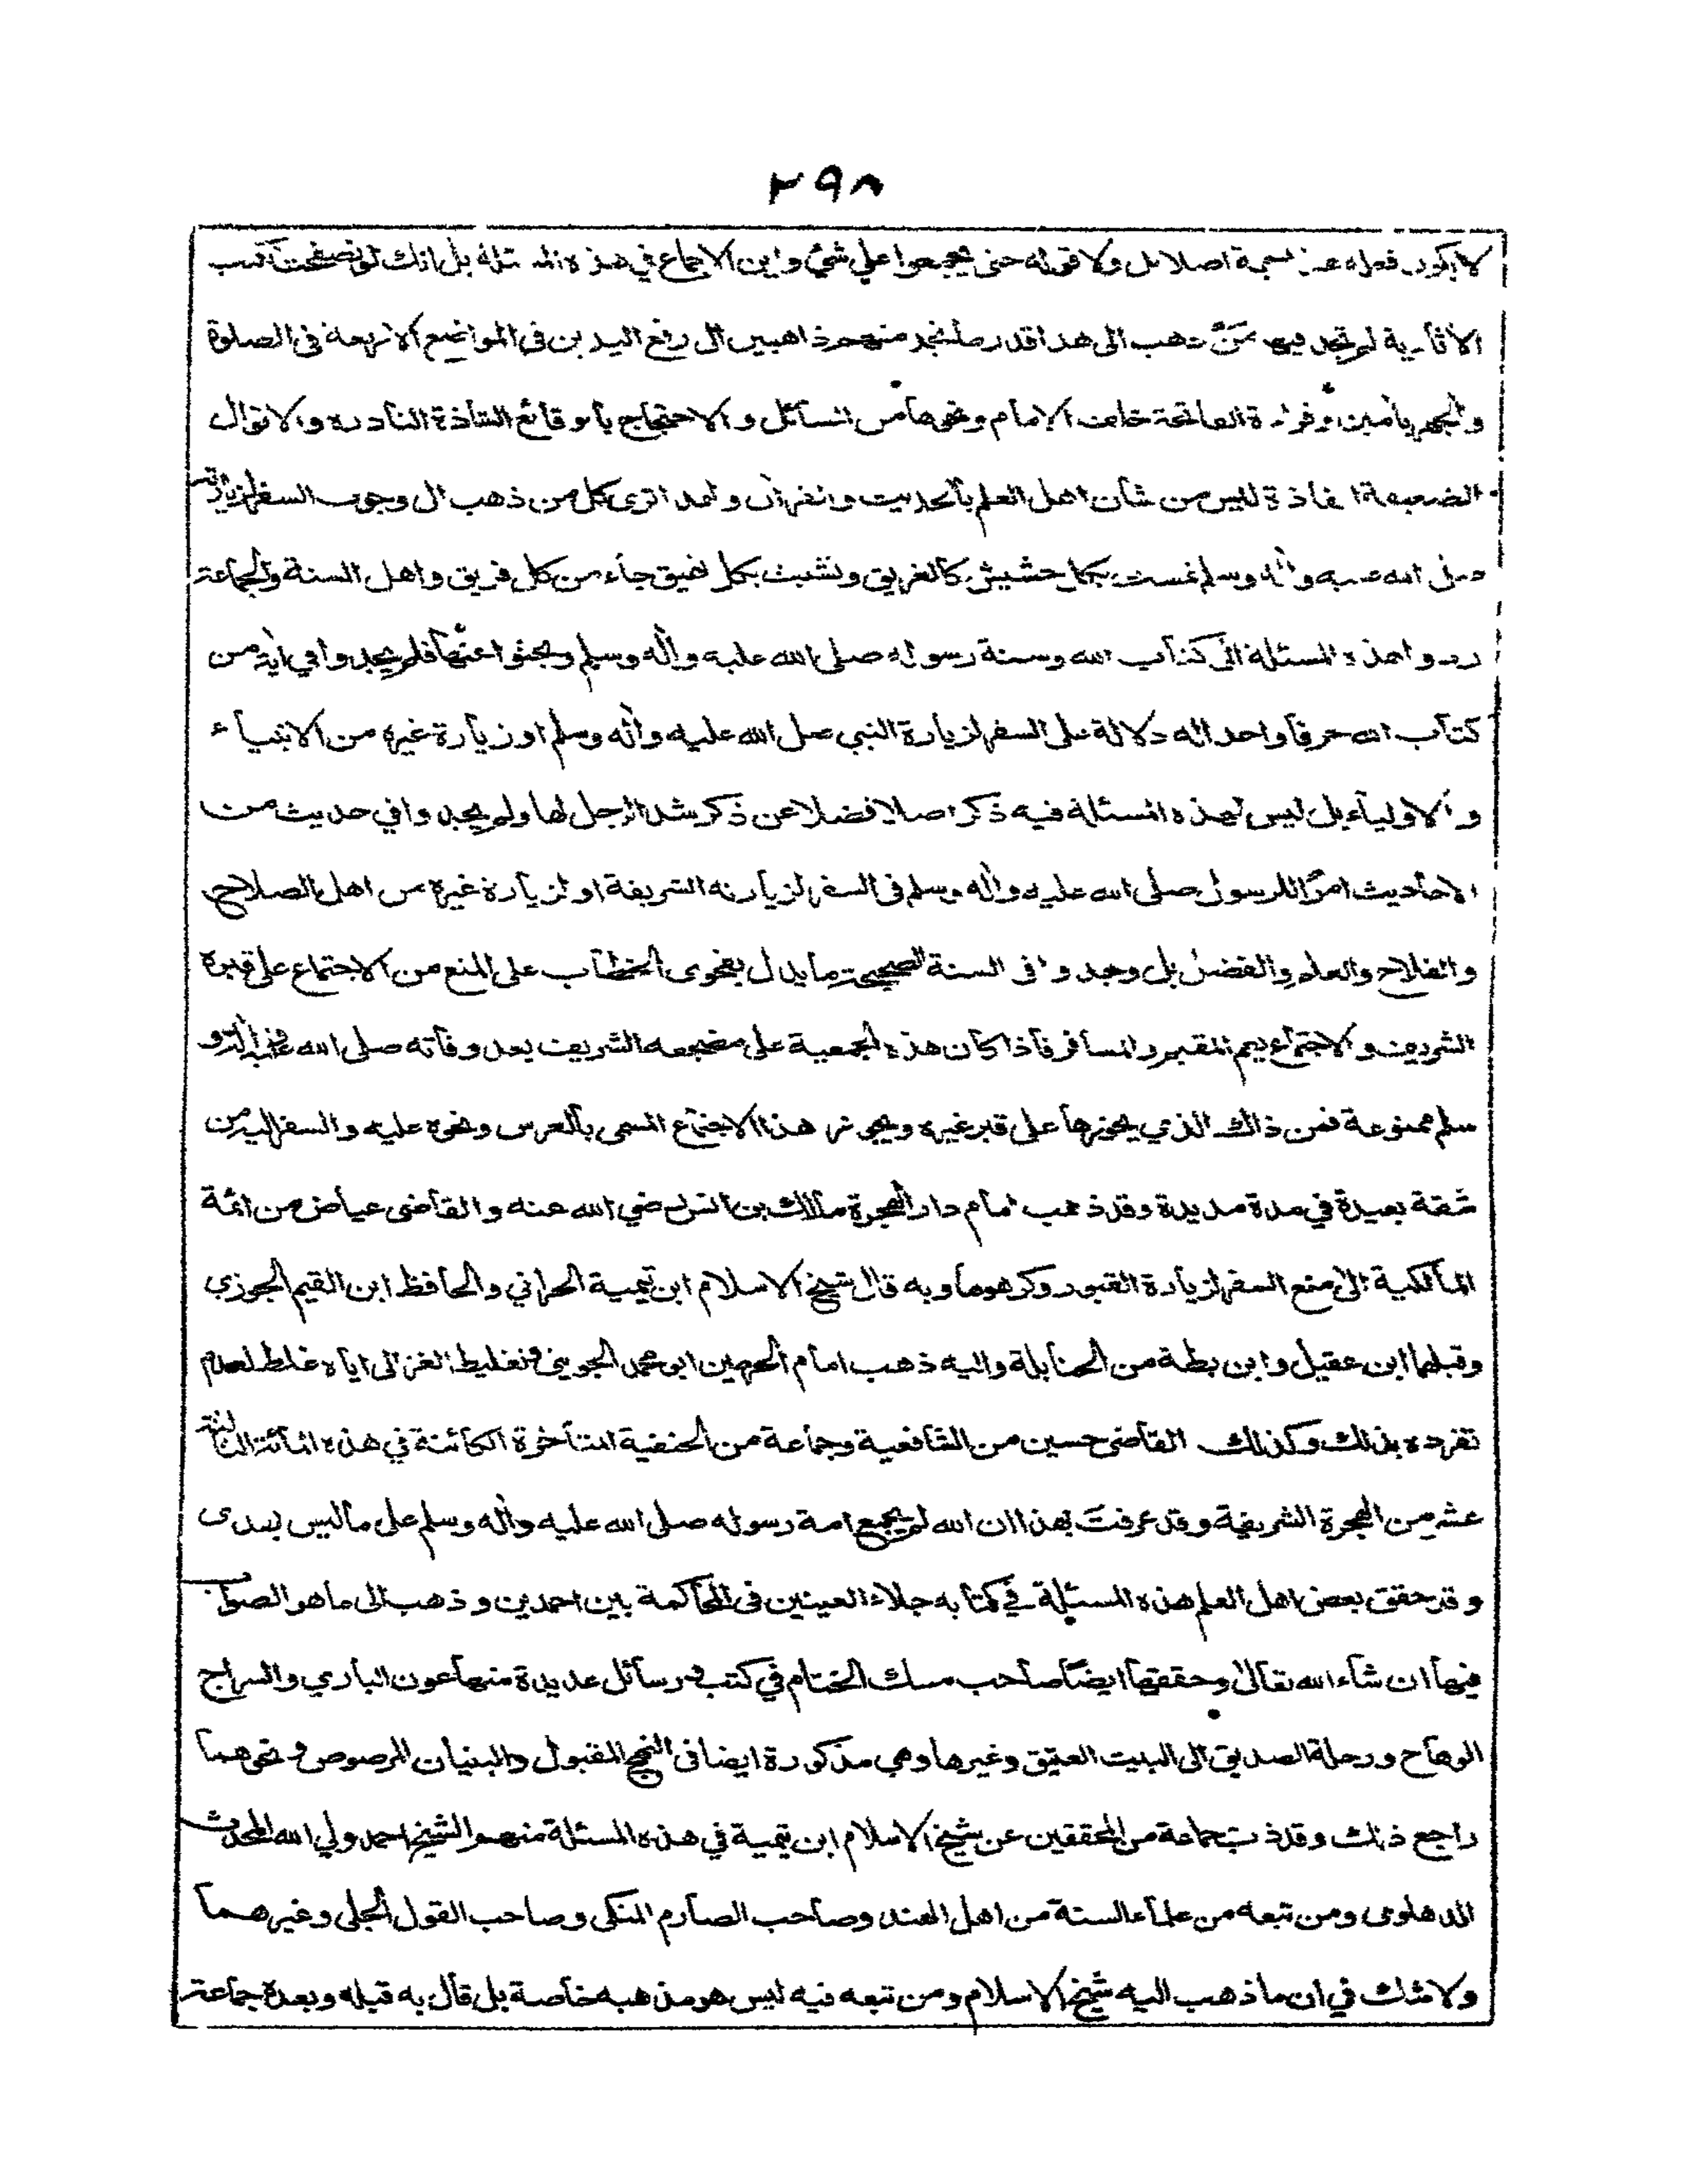 ٢٩٨
لا يكون فعله اصلا بل ولا قوله حتى يجمعوا على شئ واين الاجماع في هذه المسئلة بل انك لو تصفحت كتب
لم تجد فيها من ذهب الى هذا قد رمل نجد منهم ذاهبين الى رفع اليدين في المواضع الاربعة في الصلوة
والجهر بآمين وقراءة الفاتحة خلف الامام ونحوها من المسائل والاحتجاج بالوقائع الشاذة النادرة والاقوال
الضعيفة الفاذة ليس من شأن اهل العلم بالحديث والقرآن ولهذا ترى كل من ذهب الى وجوب السفر لزيارته
صلى الله عليه وآله وسلم تمسك بكل حشيش كالغريق وتشبث بكل نهيق جاء من كل فريق واهل السنة والجماعة
ردوا هذه المسئلة الى كتاب الله وسنة رسوله صلى الله عليه وآله وسلم وبحثوا عنها فلم يجدوا في آية من
كتاب الله حرفا واحدا له دلالة على السفر لزيارة النبي صلى الله عليه وآله وسلم او زيارة غيره من الانبياء
والاولياء بل ليس لهذه المسئلة فيه ذكر اصلا فضلا عن ذكر شد الرحل لها ولم يجدوا في حديث من
الاحاديث امرا للرسول صلى الله عليه وآله وسلم في السفر لزيارته الشريفة او لزيارة غيره من اهل الصلاح
والفلاح والعلم والفضل بل وجدوا في السنة الصحيحة ما يدل بفحوى الخطاب على المنع من الاجتماع على قبره
الشريف والاجتماع يعم المقيم والمسافر فاذا كان هذه الجمعية على مضجعه الشريف بعد وفاته صلى الله عليه وآله و
سلم ممنوعة فمن ذلك الذي يجوزها على قبر غيره ويجوز هذا الاجتماع المسمى بالعرس ونحوه عليه والسفر اليه من
شقة بعيدة في مدة مديدة وقد ذهب امام دار الهجرة مالك بن انس رضي الله عنه والقاضى عياض من ائمة
المالكية الى منع السفر لزيارة القبور وكرهوها وبه قال شيخ الاسلام ابن تيمية الحراني والحافظ ابن القيم الجوزي
وقبلهما ابن عقيل وابن بطة من الحنابلة واليه ذهب امام الحرمين ابو محمد الجويني وتغليط الغزالى اياه غلط لعدم
تفرده بذلك وكذلك القاضى حسين من الشافعية وجماعة من الحنفية المتأخرة الكائنة في هذه المائة الثالثة
عشر من الهجرة الشريفة وقد عرفت بهذا ان الله لم يجمع امة رسوله صلى الله عليه وآله وسلم على ما ليس بهدى
وقد حقق بعض اهل العلم هذه المسئلة في كتابه جلاء العينين في المحاكمة بين احمدين وذهب الى ما هو الصواب
فيها ان شاء الله تعالى وحققها ايضا صاحب مسك الختام في كتب ورسائل عديدة منها عون الباري والسراج
الوهاج ورحلة الصديق الى البيت العتيق وغيرها وهي مذكورة ايضا في النهج المقبول والبنيان المرصوص ونحوهما
راجع ذلك وقد ذب جماعة من المحققين عن شيخ الاسلام ابن تيمية في هذه المسئلة منهم الشيخ احمد ولي الله المحدث
الدهلوى ومن تبعه من علماء السنة من اهل الهند وصاحب الصارم المنكى وصاحب القول الجلى وغيرهما
ولا شك في ان ما ذهب اليه شيخ الاسلام ومن تبعه فيه ليس هو مذهبه خاصة بل قال به قبله وبعده جماعة